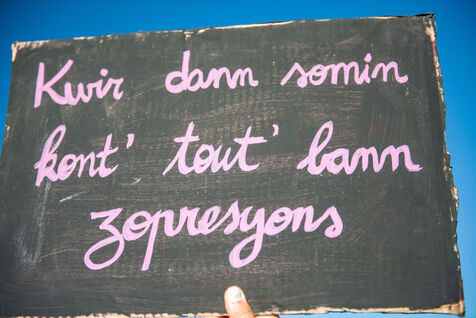 Kwir dann somin
kont' tout' bann
zopresyons